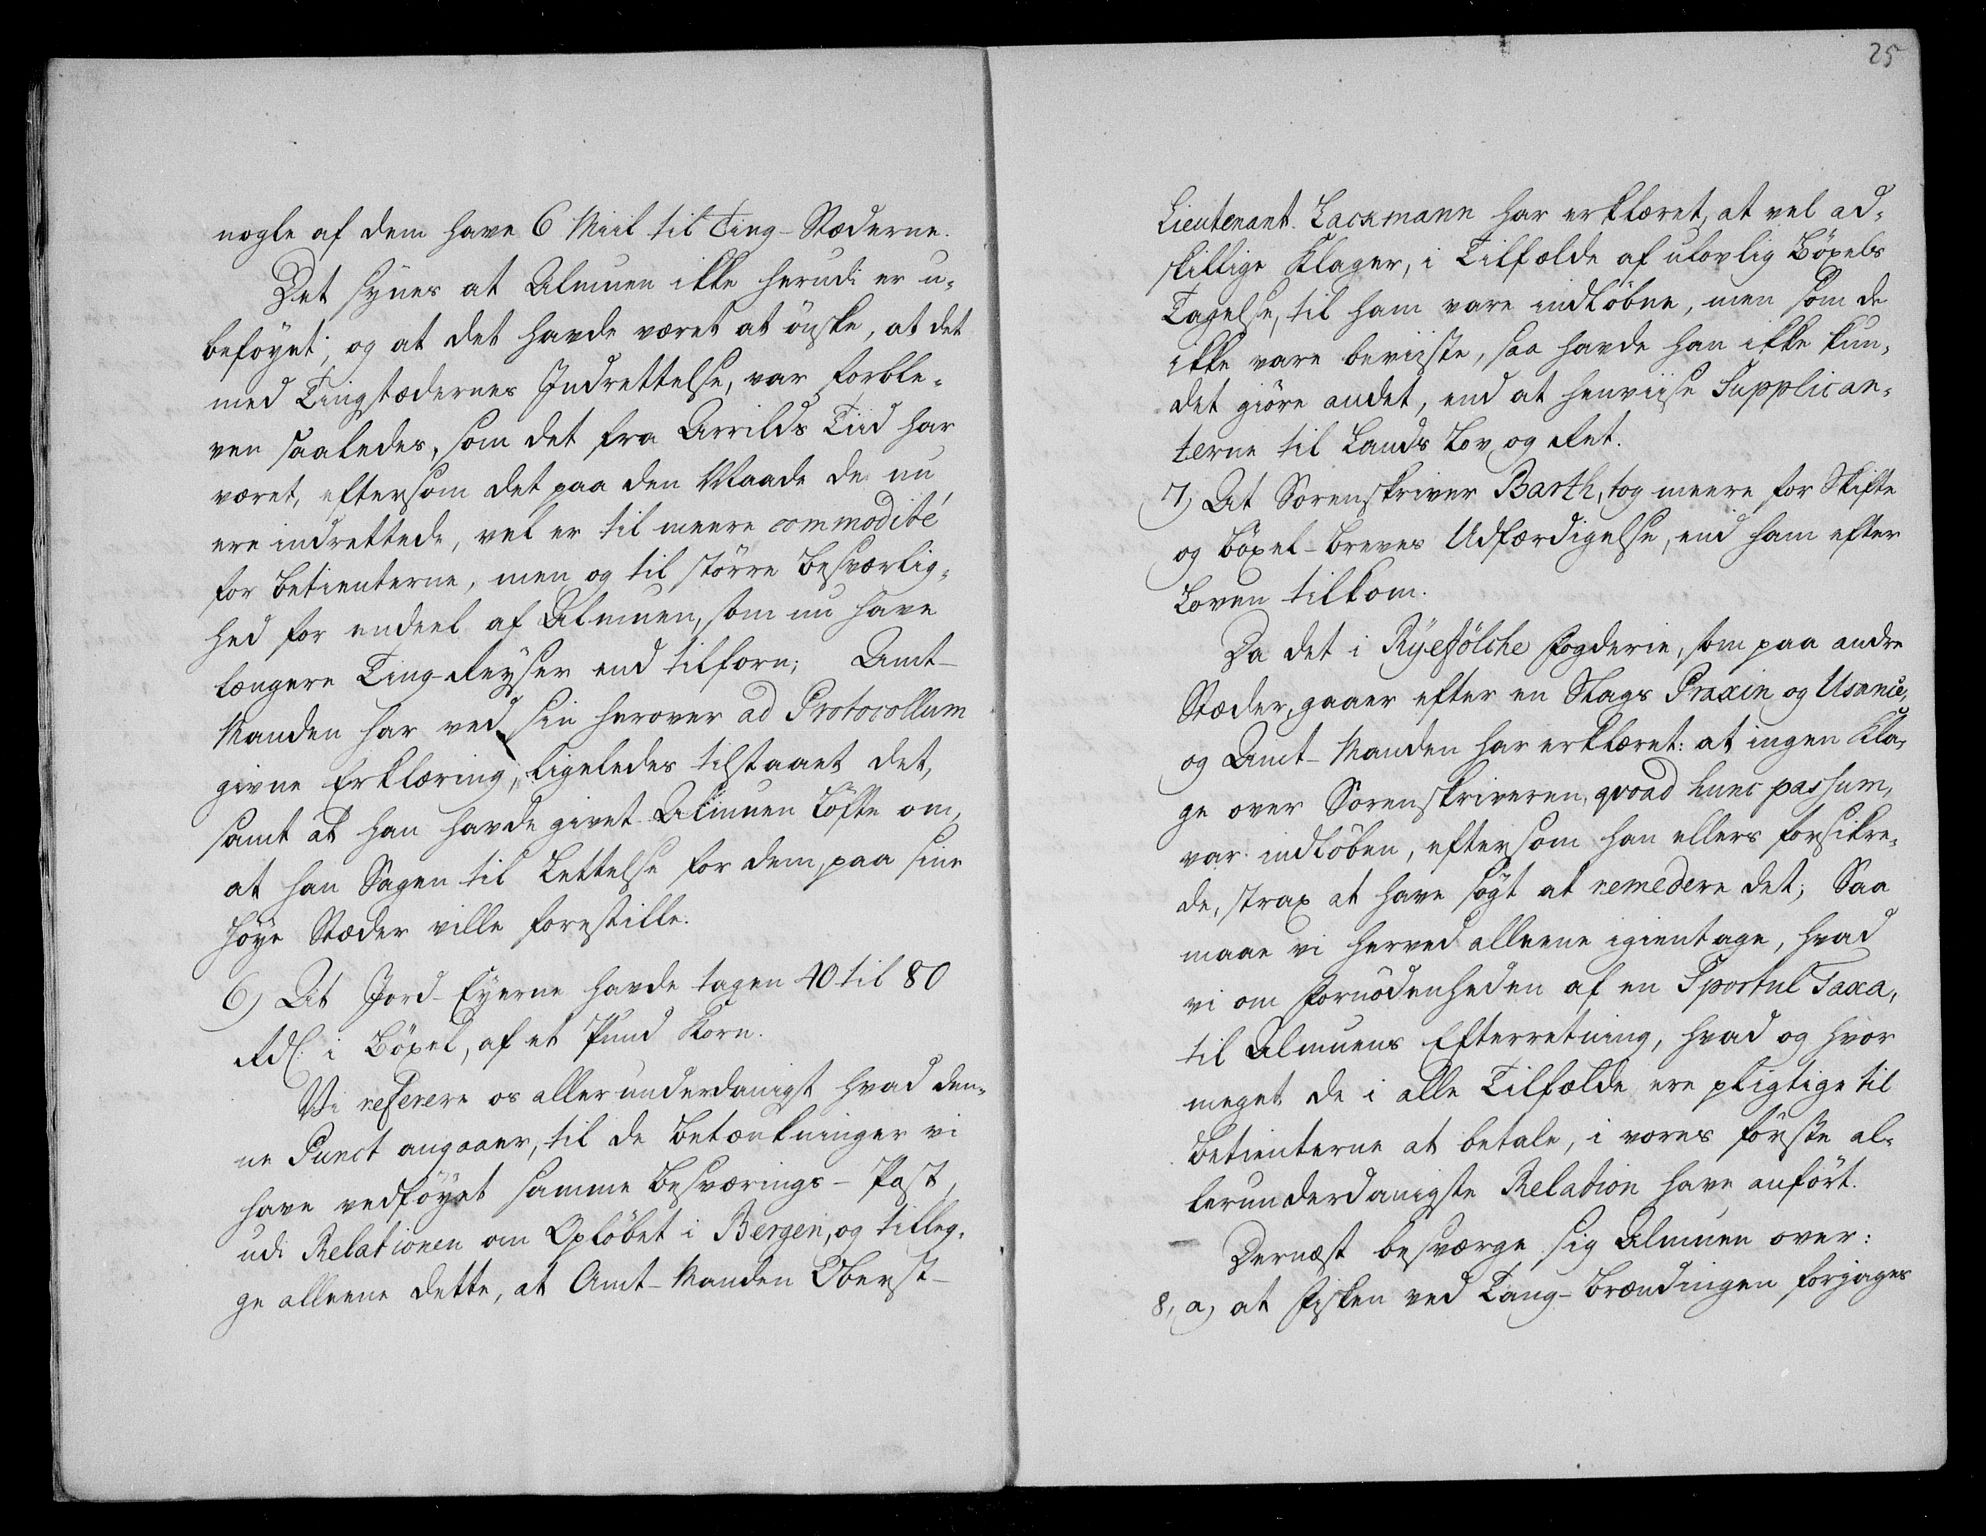 nogle af dem have 6 Miil til Ting-Stæderne.
Det synes at Almuen ikke herudi er u-
beföyet; og at det havde været at önske, at det
med Tingstædernes Indrettelse, var forble-
ven saaledes, som det fra Arrilds Tiid har
været, eftersom det paa den Maade de nu
ere indrettede, vel er til meere commodité
for Betienterne, men og til större Besværlig-
hed for endeel af Almuen, som nu have
længere Ting-Reyser end tilforn; Amt-
Manden har ved sin herover ad Protocollum
givne Erklæring, ligeledes tilstaaet det,
samt at han havde givet Almuen Löfte om,
at han Sagen til Lettelse for dem, paa sine
höye Stæder ville forestille.
6) At Jord-Eyerne havde tagen 40 til 80
Rdl: i Böxel, af et Pund Korn.
Vi referere os allerunderdanigst hvad den-
ne Punct angaaer, til de Betænkninger vi
have vedföyet samme Besværings-Post,
udi Relationen om Oplöbet i Bergen, og tilleg-
ge alleene dette, at Amt-Manden Oberst-
25
Lieutenant Lackmann har erklæret, at vel ad-
skillige Klager, i Tilfælde af ulovlig Böxels
Tagelse, til ham vare indlöbne, men som de
ikke vare beviiste, saa havde han ikke kun-
det giöre andet, end at henviise Supplican-
terne til Lands Lov og Ret.
7) At Sorenskriver Barth, tog meere for Skifte
og Böxel-Breves Udfærdigelse, end ham efter
Loven tilkom.
Da det i Ryefölche Fogderie, som paa andre
Stæder, gaaer efter en Slags Praxin og Usance,
og Amt-Manden har erklæret: at ingen Kla-
ge over Sorenskriveren, qvoad hunc passum,
var indlöben, eftersom han ellers forsikre-
de, strax at have sögt at remedere det; Saa
maae vi herved alleene igientage, hvad
vi om Fornödenheden af en Sportul Taxa,
til Almuens Efterretning, hvad og hvor
meget de i alle Tilfælde ere pligtige til
Betienterne at betale, i vores förste al-
lerunderdanigste Relation have anfört.
Dernæst besværge sig Almuen over:
8, a, at Fisken ved Tang-Brændingen forjages